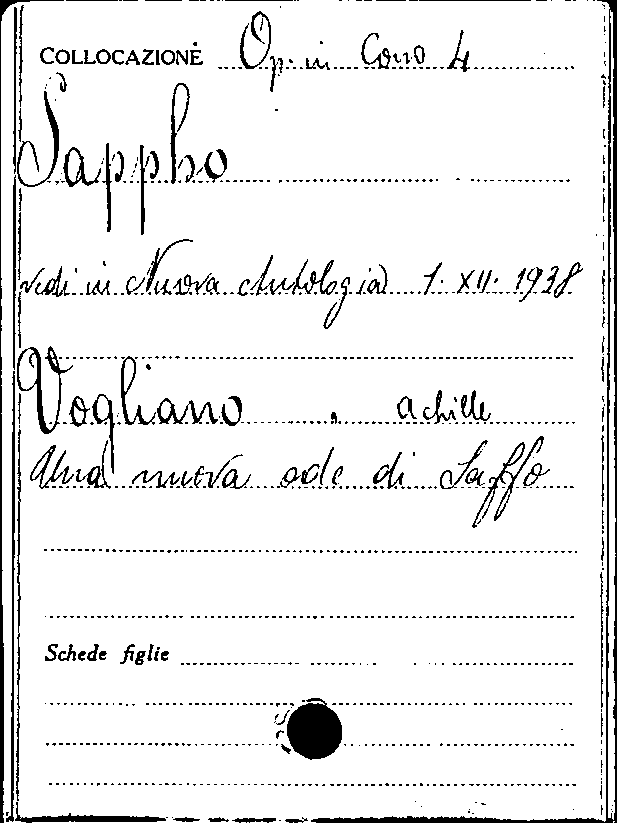 COLLOCAZIONE Op. in Cono 4
Sappho
vedi in Nuova Antologia 1. XII. 1938
Vogliano, Achille
Una nuova ode di Saffo
Schede figlie